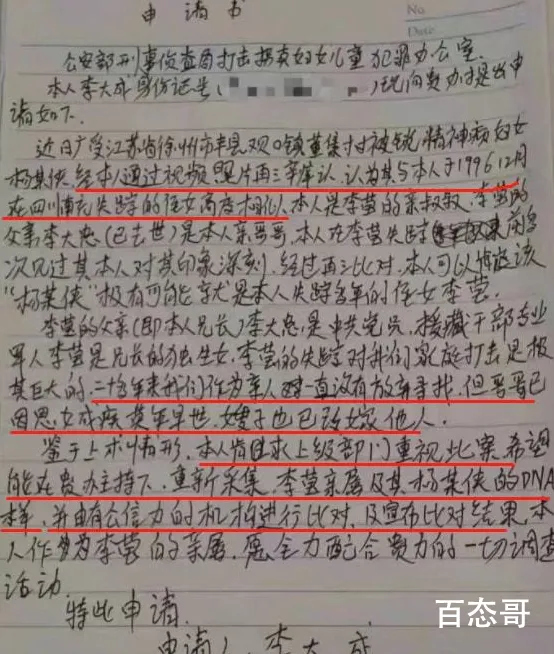 申请书
No.
Date
公安部刑事侦查局打击拐卖妇女儿童犯罪办公室:
本人李大成身份证号( )现向贵办提出申
请如下.
近日广受江苏省徐州市丰县欢口镇董集村被锁精神病妇女
杨某侠,经本人通过视频照片再三辨认,认为其与本人于1996 12月
在四川南充失踪的侄女高度相似,本人是李莹的亲叔叔,李莹的
父亲李大忠(已去世)是本人亲哥哥,本人在李莹失踪前多
次见过其本人对其印象深刻,经过再三比对,本人可以情该
"杨某侠"极有可能就是本人失踪多年的侄女李莹.
李莹的父亲(即本人兄长)李大忠,是中共党员,援藏干部专业
军人李莹是兄长的独生女,李莹的失踪对我们家庭打击是极
其巨大的,二十多年来我们作为亲人一直没有放弃寻找,但哥哥已
因思女成疾英年早世,嫂子也已改嫁他人.
鉴于上术情形,本人肯求上级部门重视此案希望
能在贵办主持下,重新采集,李莹亲属及其杨某侠的DNA
样,并由有公信力的机构进行比对,及宣布比对结果,本
人作为李莹的亲属,愿全力配合贵力的一切调查
活动.
特此申请.
申请人:李大成
百态哥